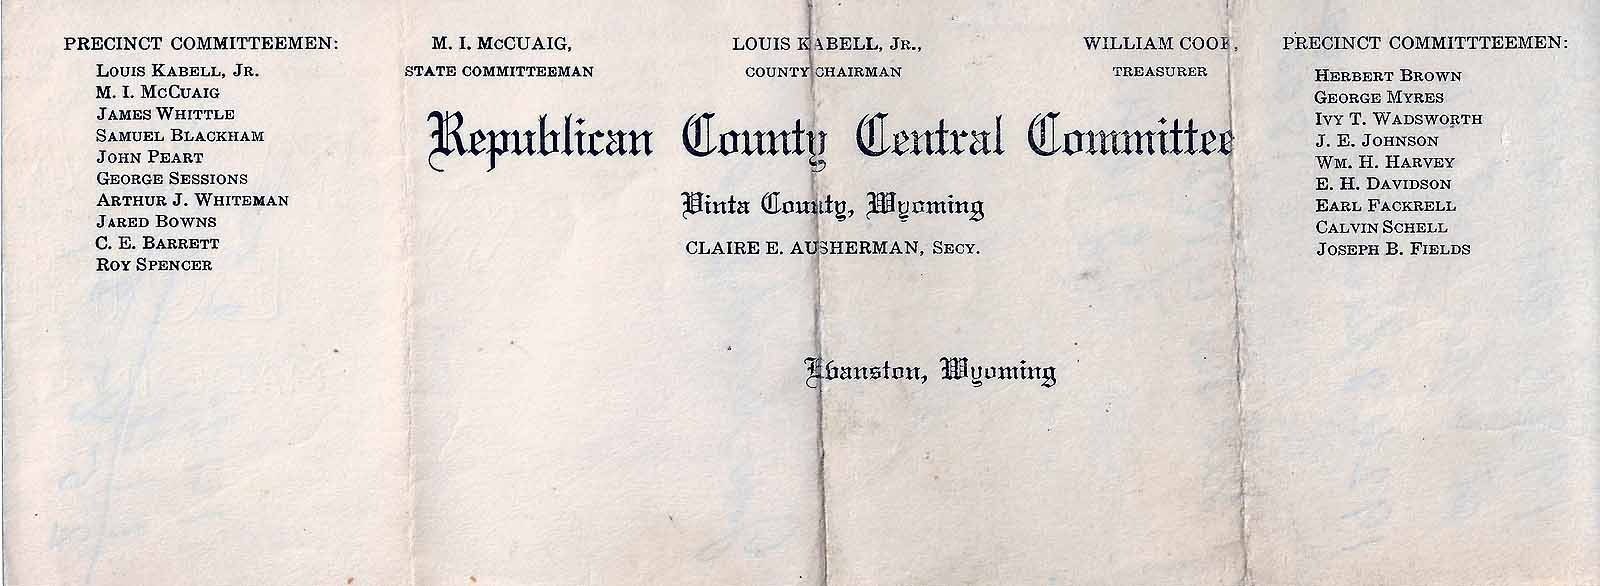 PRECINCT COMMITTEEMEN:
LOUIS KABELL, JR.
M. I. MCCUAIG
JAMES WHITTLE
SAMUEL BLACKHAM
JOHN PEART
GEORGE SESSIONS
ARTHUR J. WHITEMAN
JARED BOWNS
C. E. BARRETT
ROY SPENCER
M. I. MCCUAIG,
STATE COMMITTEEMAN
LOUIS KABELL, JR.,
COUNTY CHAIRMAN
WILLIAM COOK,
TREASURER
Republican County Central Committee
Uinta County, Wyoming
CLAIRE E. AUSHERMAN, SECY.
Evanston, Wyoming
PRECINCT COMMITTTEEMEN:
HERBERT BROWN
GEORGE MYRES
IVY T. WADSWORTH
J. E. JOHNSON
WM. H. HARVEY
E. H. DAVIDSON
EARL FACKRELL
CALVIN SCHELL
JOSEPH B. FIELDS